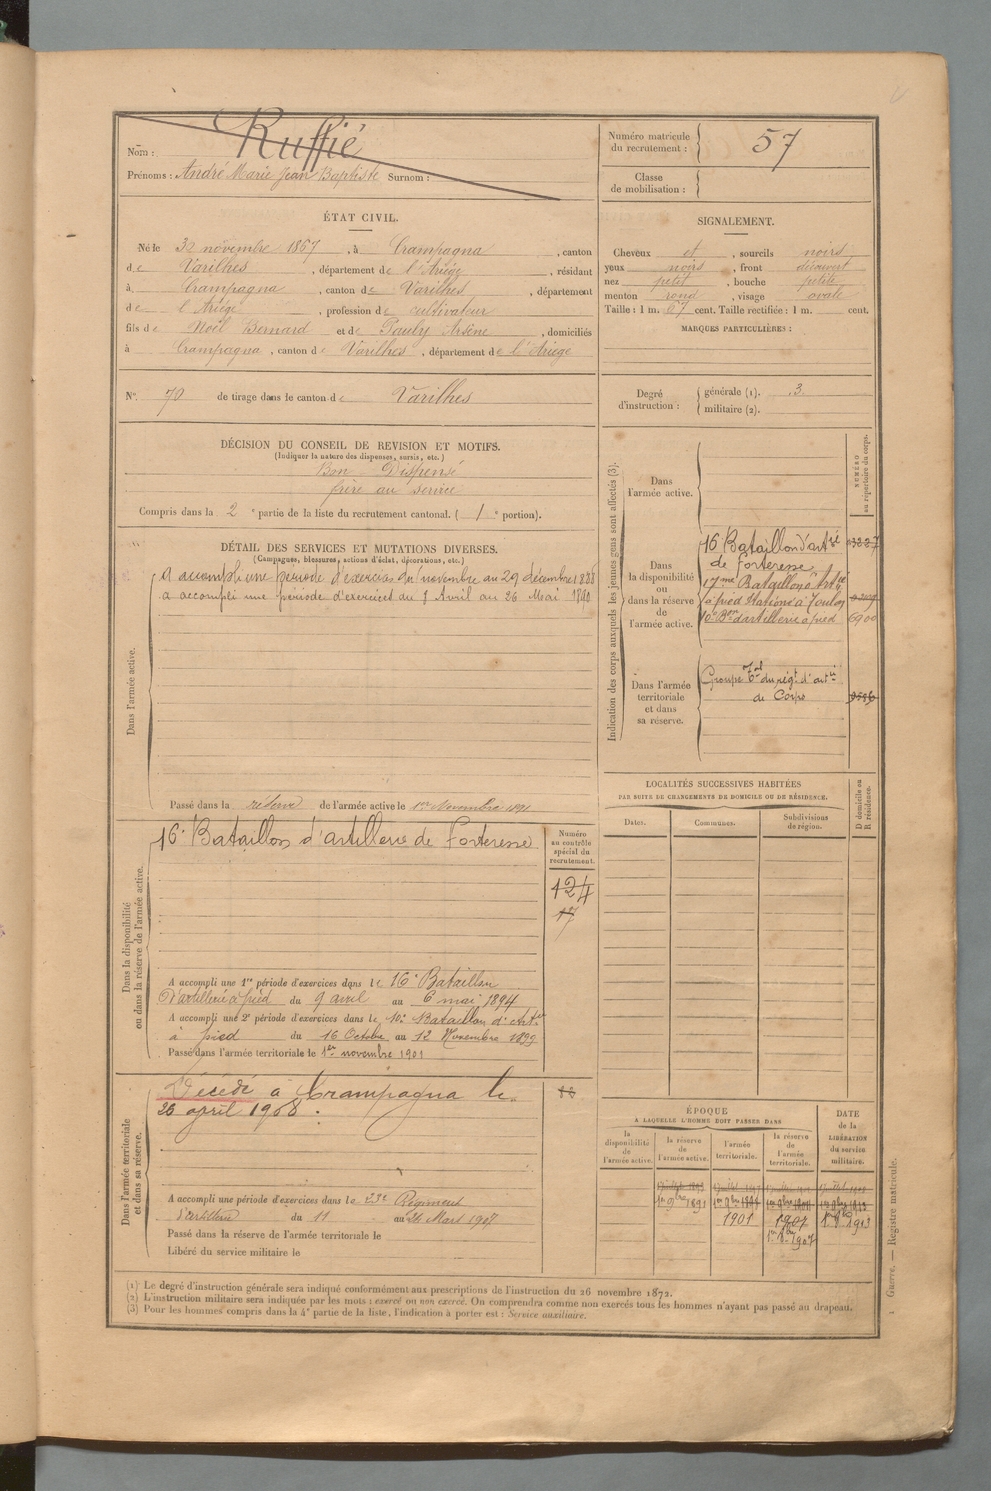 Nom : Ruffié
Prénoms : André Marie Jean Baptiste Surnom :
Numéro matricule
du recrutement : 57
Classe
de mobilisation :
ÉTAT CIVIL.
Né le 30 novembre 1867, à Crampagna, canton
de Varilhes, département de l'Ariège, résidant
à Crampagna, canton de Varilhes, département
de l'Ariège, profession de cultivateur
fils de Noël Bernard et de Pauly Arsène, domiciliés
à Crampagna, canton de Varilhes, département de l'Ariège
SIGNALEMENT.
Cheveux et, sourcils noirs
yeux noirs, front découvert
nez petit, bouche petite
menton rond, visage ovale
Taille : 1 m. 67 cent. Taille rectifiée : 1 m. cent.
MARQUES PARTICULIÈRES :
N° 70 de tirage dans le canton de Varilhes
Degré
d'instruction :
générale (1). 3
militaire (2).
DÉCISION DU CONSEIL DE REVISION ET MOTIFS.
(Indiquer la nature des dispenses, sursis, etc.)
Bon - Dispensé
frère au service
Compris dans la 2e partie de la liste du recrutement cantonal. (1e portion).
DÉTAIL DES SERVICES ET MUTATIONS DIVERSES.
(Campagnes, blessures, actions d'éclat, décorations, etc.)
Dans l'armée active.
A accompli une période d'exercices du novembre au 29 décembre 1888
a accompli une période d'exercices du 8 Avril au 26 Mai 1890
Passé dans la réserve de l'armée active le 1er Novembre 1891
Indication des corps auxquels les jeunes gens sont affectés (3).
NUMÉRO
au répertoire du corps.
Dans
l'armée active.
Dans
la disponibilité
ou
dans la réserve
de
l'armée active.
16 Bataillon d'artie
de forteresse
17me Bataillon d'Artie
à pied Stationé à Toulon
10e Bon d'artillerie à pied 6900
Dans l'armée
territoriale
et dans
sa réserve.
Groupe Tal du régt d'artie
de Corps
LOCALITÉS SUCCESSIVES HABITÉES
PAR SUITE DE CHANGEMENTS DE DOMICILE OU DE RÉSIDENCE.
Dates.
Communes.
Subdivisions
de région.
D domicile ou
R résidence.
Dans la disponibilité
ou dans la réserve de l'armée active.
16e Bataillon d'artillerie de forteresse
Numéro
au contrôle
spécial du
recrutement.
124
17
A accompli une 1re période d'exercices dans le 16e Bataillon
d'artillerie à pied du 9 avril au 6 mai 1894
A accompli une 2e période d'exercices dans le 10e Bataillon d'Artie
à pied du 16 Octobre au 12 Novembre 1899
Passé dans l'armée territoriale le 1er novembre 1901
Dans l'armée territoriale
et dans sa réserve.
Décédé à Crampagna le
26 april 1908.
A accompli une période d'exercices dans le 23e Régiment
d'artillerie du 11 au 24 Mars 1907
Passé dans la réserve de l'armée territoriale le
Libéré du service militaire le
ÉPOQUE
A LAQUELLE L'HOMME DOIT PASSER DANS
la
disponibilité
de
l'armée active.
la réserve
de
l'armée active.
l'armée
territoriale.
la réserve
de
l'armée
territoriale.
DATE
de la
LIBÉRATION
du service
militaire.
1er 9bre 1891
1901
1907
1er 9bre 1913
1er 9bre 1907
(1) Le degré d'instruction générale sera indiqué conformément aux prescriptions de l'instruction du 26 novembre 1872.
(2) L'instruction militaire sera indiquée par les mots : exercé ou non exercé. On comprendra comme non exercés tous les hommes n'ayant pas passé au drapeau.
(3) Pour les hommes compris dans la 4e partie de la liste, l'indication à porter est : Service auxiliaire.
Guerre. — Registre matricule.